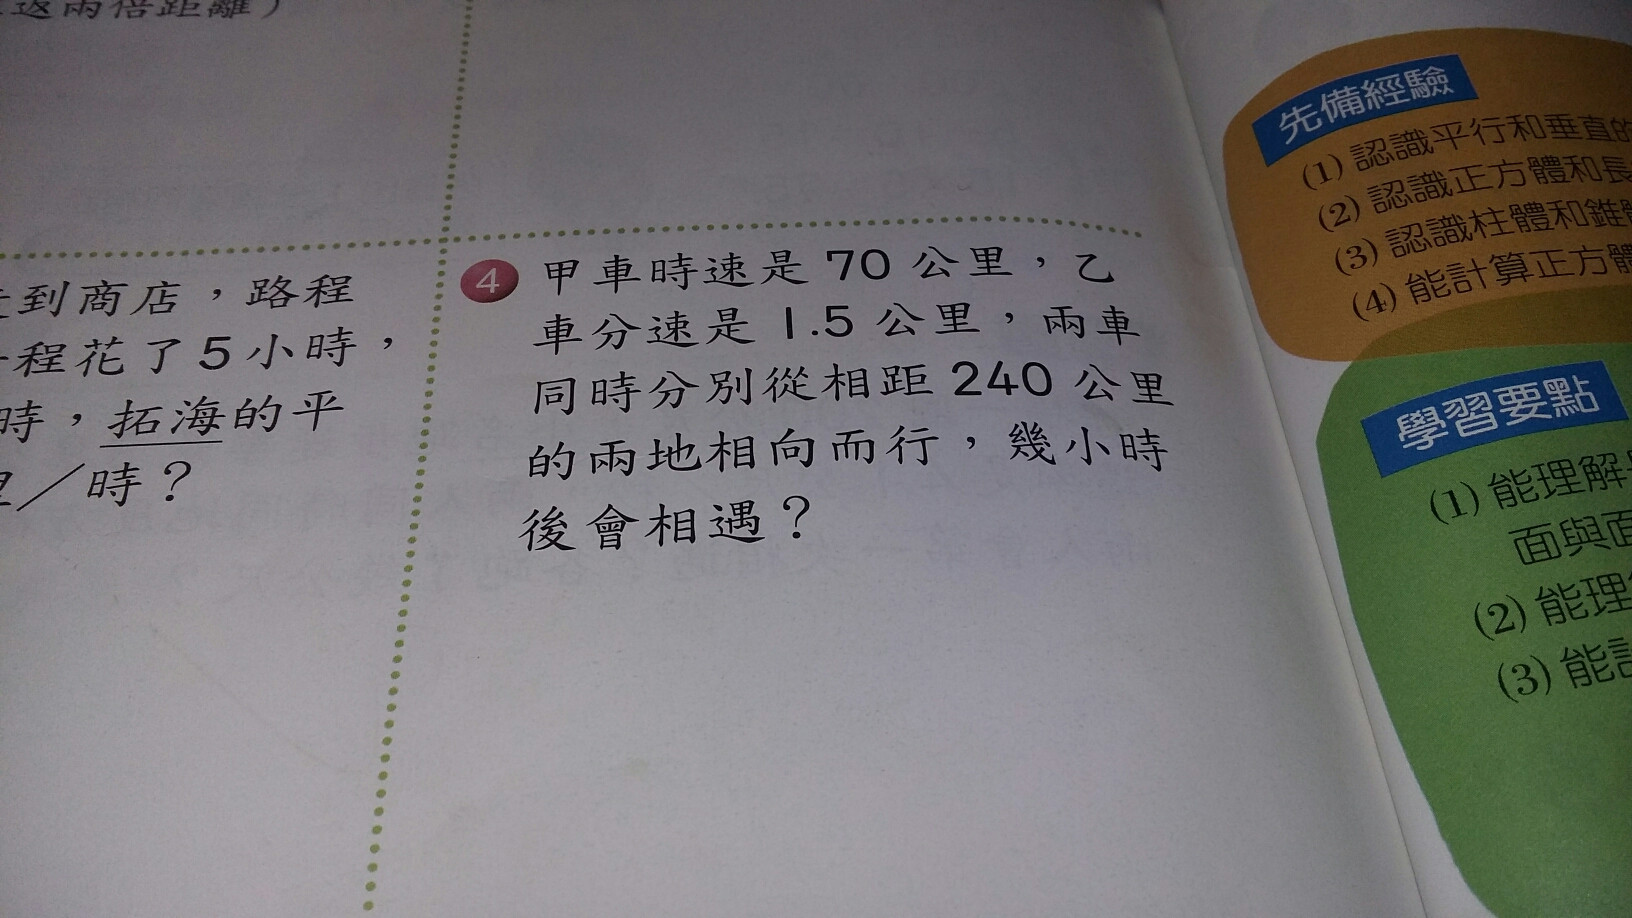 返兩倍距離）
到商店，路程
程花了5小時，
時，拓海的平
／時？
4 甲車時速是70公里，乙
車分速是1.5公里，兩車
同時分別從相距240公里
的兩地相向而行，幾小時
後會相遇？
先備經驗
(1) 認識平行和垂直的
(2) 認識正方體和長
(3) 認識柱體和錐
(4) 能計算正方體
學習要點
(1) 能理解
面與面
(2) 能理
(3) 能